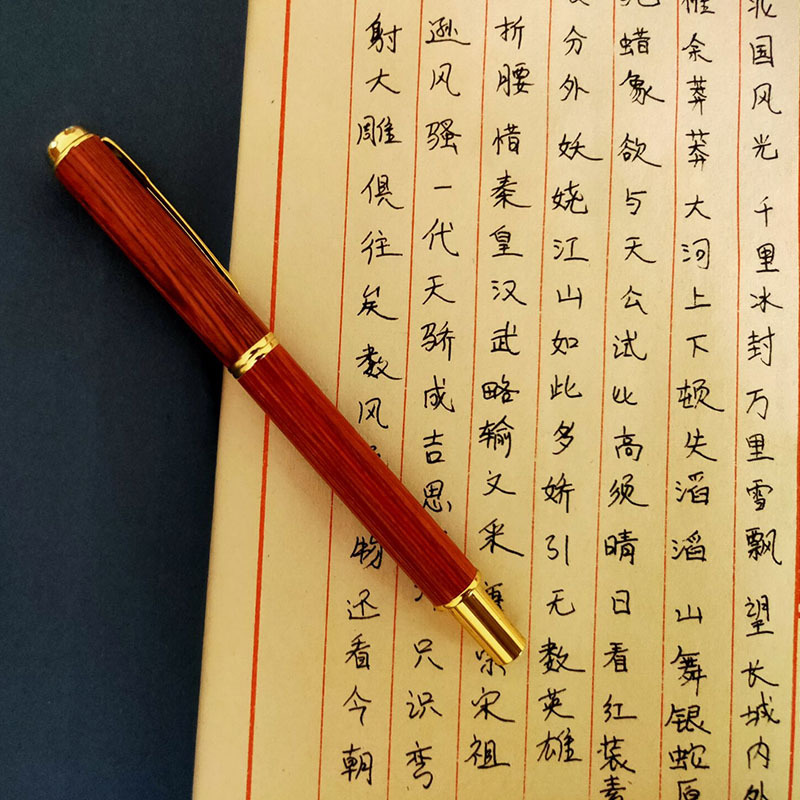 北国风光千里冰封万里雪飘望长城内外
惟余莽莽大河上下顿失滔滔山舞银蛇原
蜡象欲与天公试比高须晴日看红装素
分外妖娆江山如此多娇引无数英雄
折腰惜秦皇汉武略输文采宗宋祖
逊风骚一代天骄成吉思只识弯
射大雕俱往矣数风物还看今朝